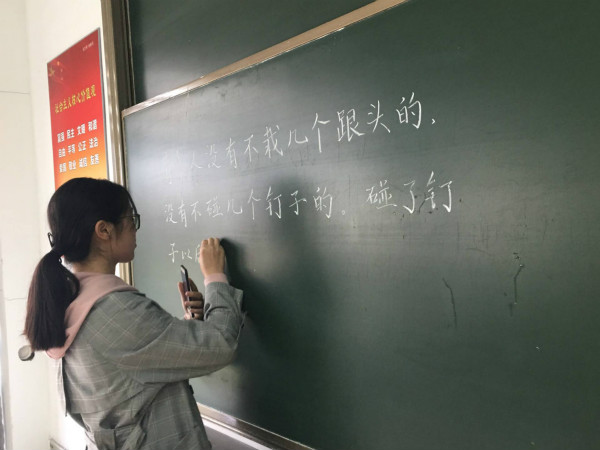 社会主义核心价值观
富强 民主 文明 和谐
自由 平等 公正 法治
爱国 敬业 诚信 友善
人没有不栽几个跟头的,
没有不碰几个钉子的。碰了钉
子以